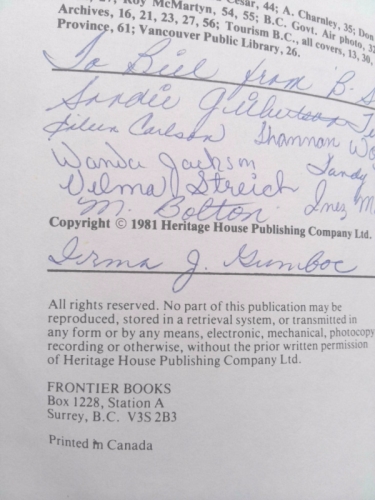 Cesar, 44; A. Charnley, 35; Don
Roy McMartyn, 54, 55; B.C. Govt. Air photo, 32
Archives, 16, 21, 23, 27, 56; Tourism B.C., all covers, 13, 30,
Province, 61; Vancouver Public Library, 26.
To Bill from B. S
Sandie Gilbertson
Eileen Carlson Shannon Wo
Wanda Jackson Tandy
Velma Streich
M. Bolton Inez M
Copyright © 1981 Heritage House Publishing Company Ltd.
Irma J. Gumboc
All rights reserved. No part of this publication may be
reproduced, stored in a retrieval system, or transmitted in
any form or by any means, electronic, mechanical, photocopy
recording or otherwise, without the prior written permission
of Heritage House Publishing Company Ltd.
FRONTIER BOOKS
Box 1228, Station A
Surrey, B.C. V3S 2B3
Printed in Canada